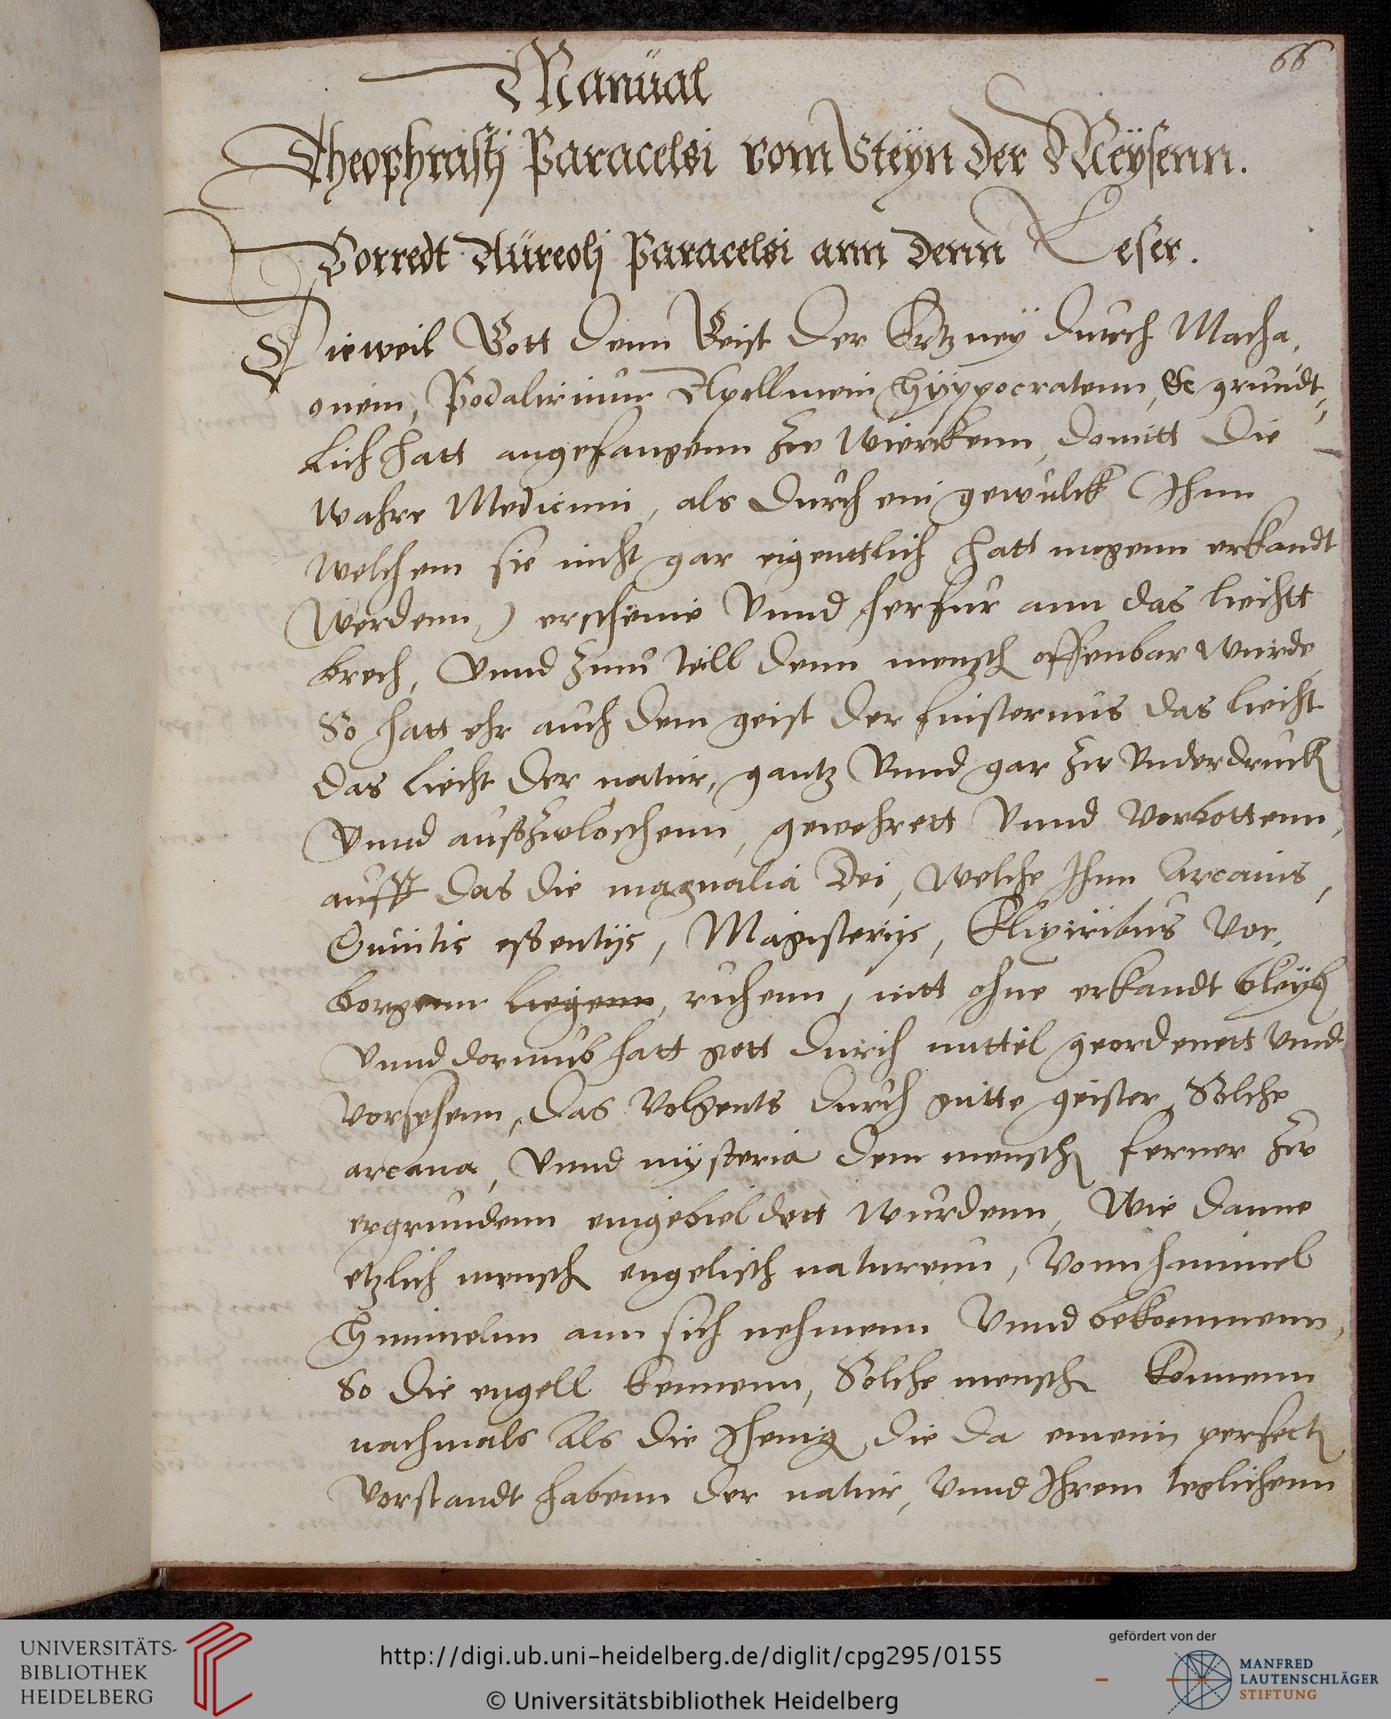 66
Manüal
Theophrastj Paracelsi vom Steÿn der Weÿsenn.
Vorredt Aüreolj Paracelsi ann denn Leser.
Dieweil Gott denn Geist der Ertzneÿ durch Macha,
onem, Podalirium Apollinem Hÿppocratenn, &c gründt„
lich hatt angefangenn zu wierckenn, domitt die
wahre Medicinn, als durch ein gewülck (Ihnn
welchem sie nicht gar eigenttlich hatt mogenn erkandt
werdenn,) erscheine Vnnd herfür ann das liechtt
brech, Vnnd zum teill denn mensch offenbar würde,
So hatt ehr auch dem geist der finsternüs das liecht
das liecht der natür, gantz Vnnd gar zu Vnderdruck
Vnnd außzuloschenn, gewehrett Vnnd Verbottenn,
auff das die magnalia Dei, welche Ihnn Arcanis,
Quintis eßentijs, Magisterijs, Elixiribus Ver,
borgenn liegenn, ruhenn, nitt ohne erkandt bleÿb
Vnnd dorumb hatt gott durch mittel geordenett Vnnd
Vorsehenn, das Volgents durch gutte geister, Solche
arcana, Vnnd mÿsteria dem mensch ferner zu
ergrundenn eingebieldett würdenn, Wie danne
etzlich mensch engelisch naturenn, Vom himmel
Himmelnn ann sich nehmenn Vnnd bekommenn,
So die engell kennenn, Solche mensch konnenn
nachmals als die Ihenig die da einenn perfect
Vorstandt habenn der natür, Vnnd Ihrem teglichenn
UNIVERSITÄTS-
BIBLIOTHEK
HEIDELBERG
http://digi.ub.uni-heidelberg.de/diglit/cpg295/0155
© Universitätsbibliothek Heidelberg
gefördert von der
MANFRED
LAUTENSCHLÄGER
STIFTUNG